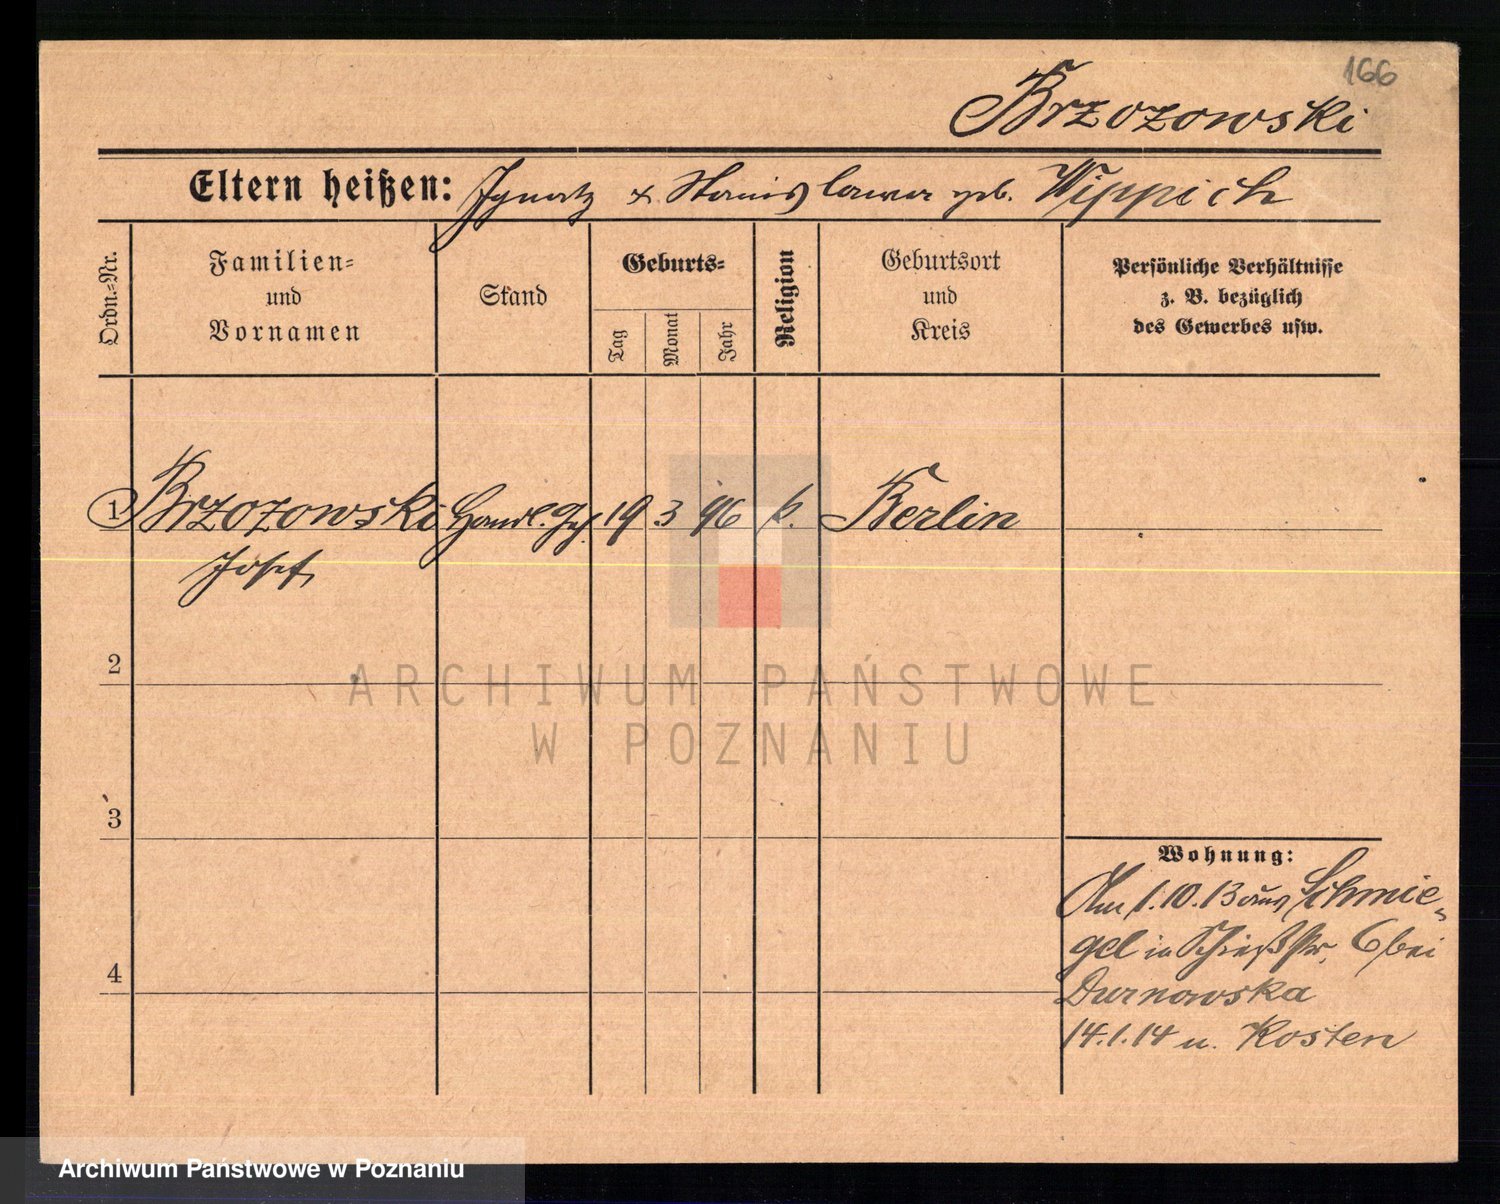 166
Brzozowski
Eltern heißen: Ignatz & Stanislawa geb. Wippich
Ordn.=Nr.
Familien=
und
Vornamen
Stand
Geburts=
Tag
Monat
Jahr
Religion
Geburtsort
und
Kreis
Persönliche Verhältnisse
z. B. bezüglich
des Gewerbes usw.
1 Brzozowski Handl. Geh. 19 3 96 k. Berlin
Josef
2
ARCHIWUM PAŃSTWOWE
W POZNANIU
3
Wohnung:
Am 1.10.13 aus Schmie=
gel in Schießstr. 6 bei
4
Durnowska
14.1.14 n. Kosten
Archiwum Państwowe w Poznaniu